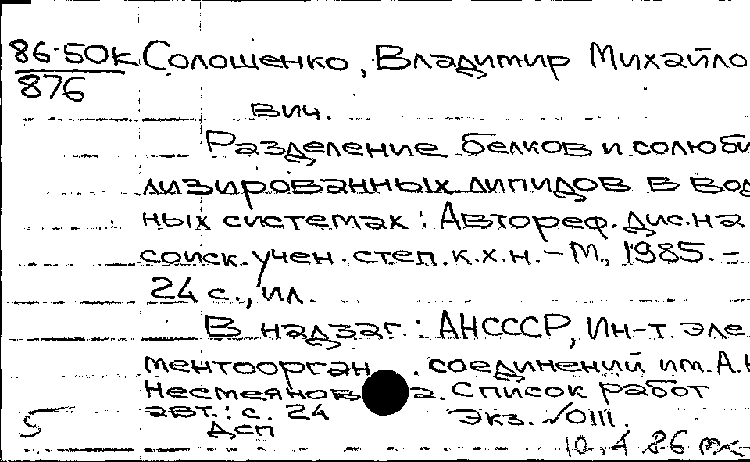 86-50к Солошенко, Владимир Михайло
876
вич.
Разделение белков и солюби
лизированных липидов в вод
ных системах: Автореф. дис. на
соиск. учен. степ. к.х.н. - М., 1985. -
24 с., ил.
В надзаг.: АНСССР, Ин-т эле
ментоорган. соединений им. А.Н
Несмеянова. Список работ
авт.: с. 24
ДСП
Экз. №0111.
5
10.4 86